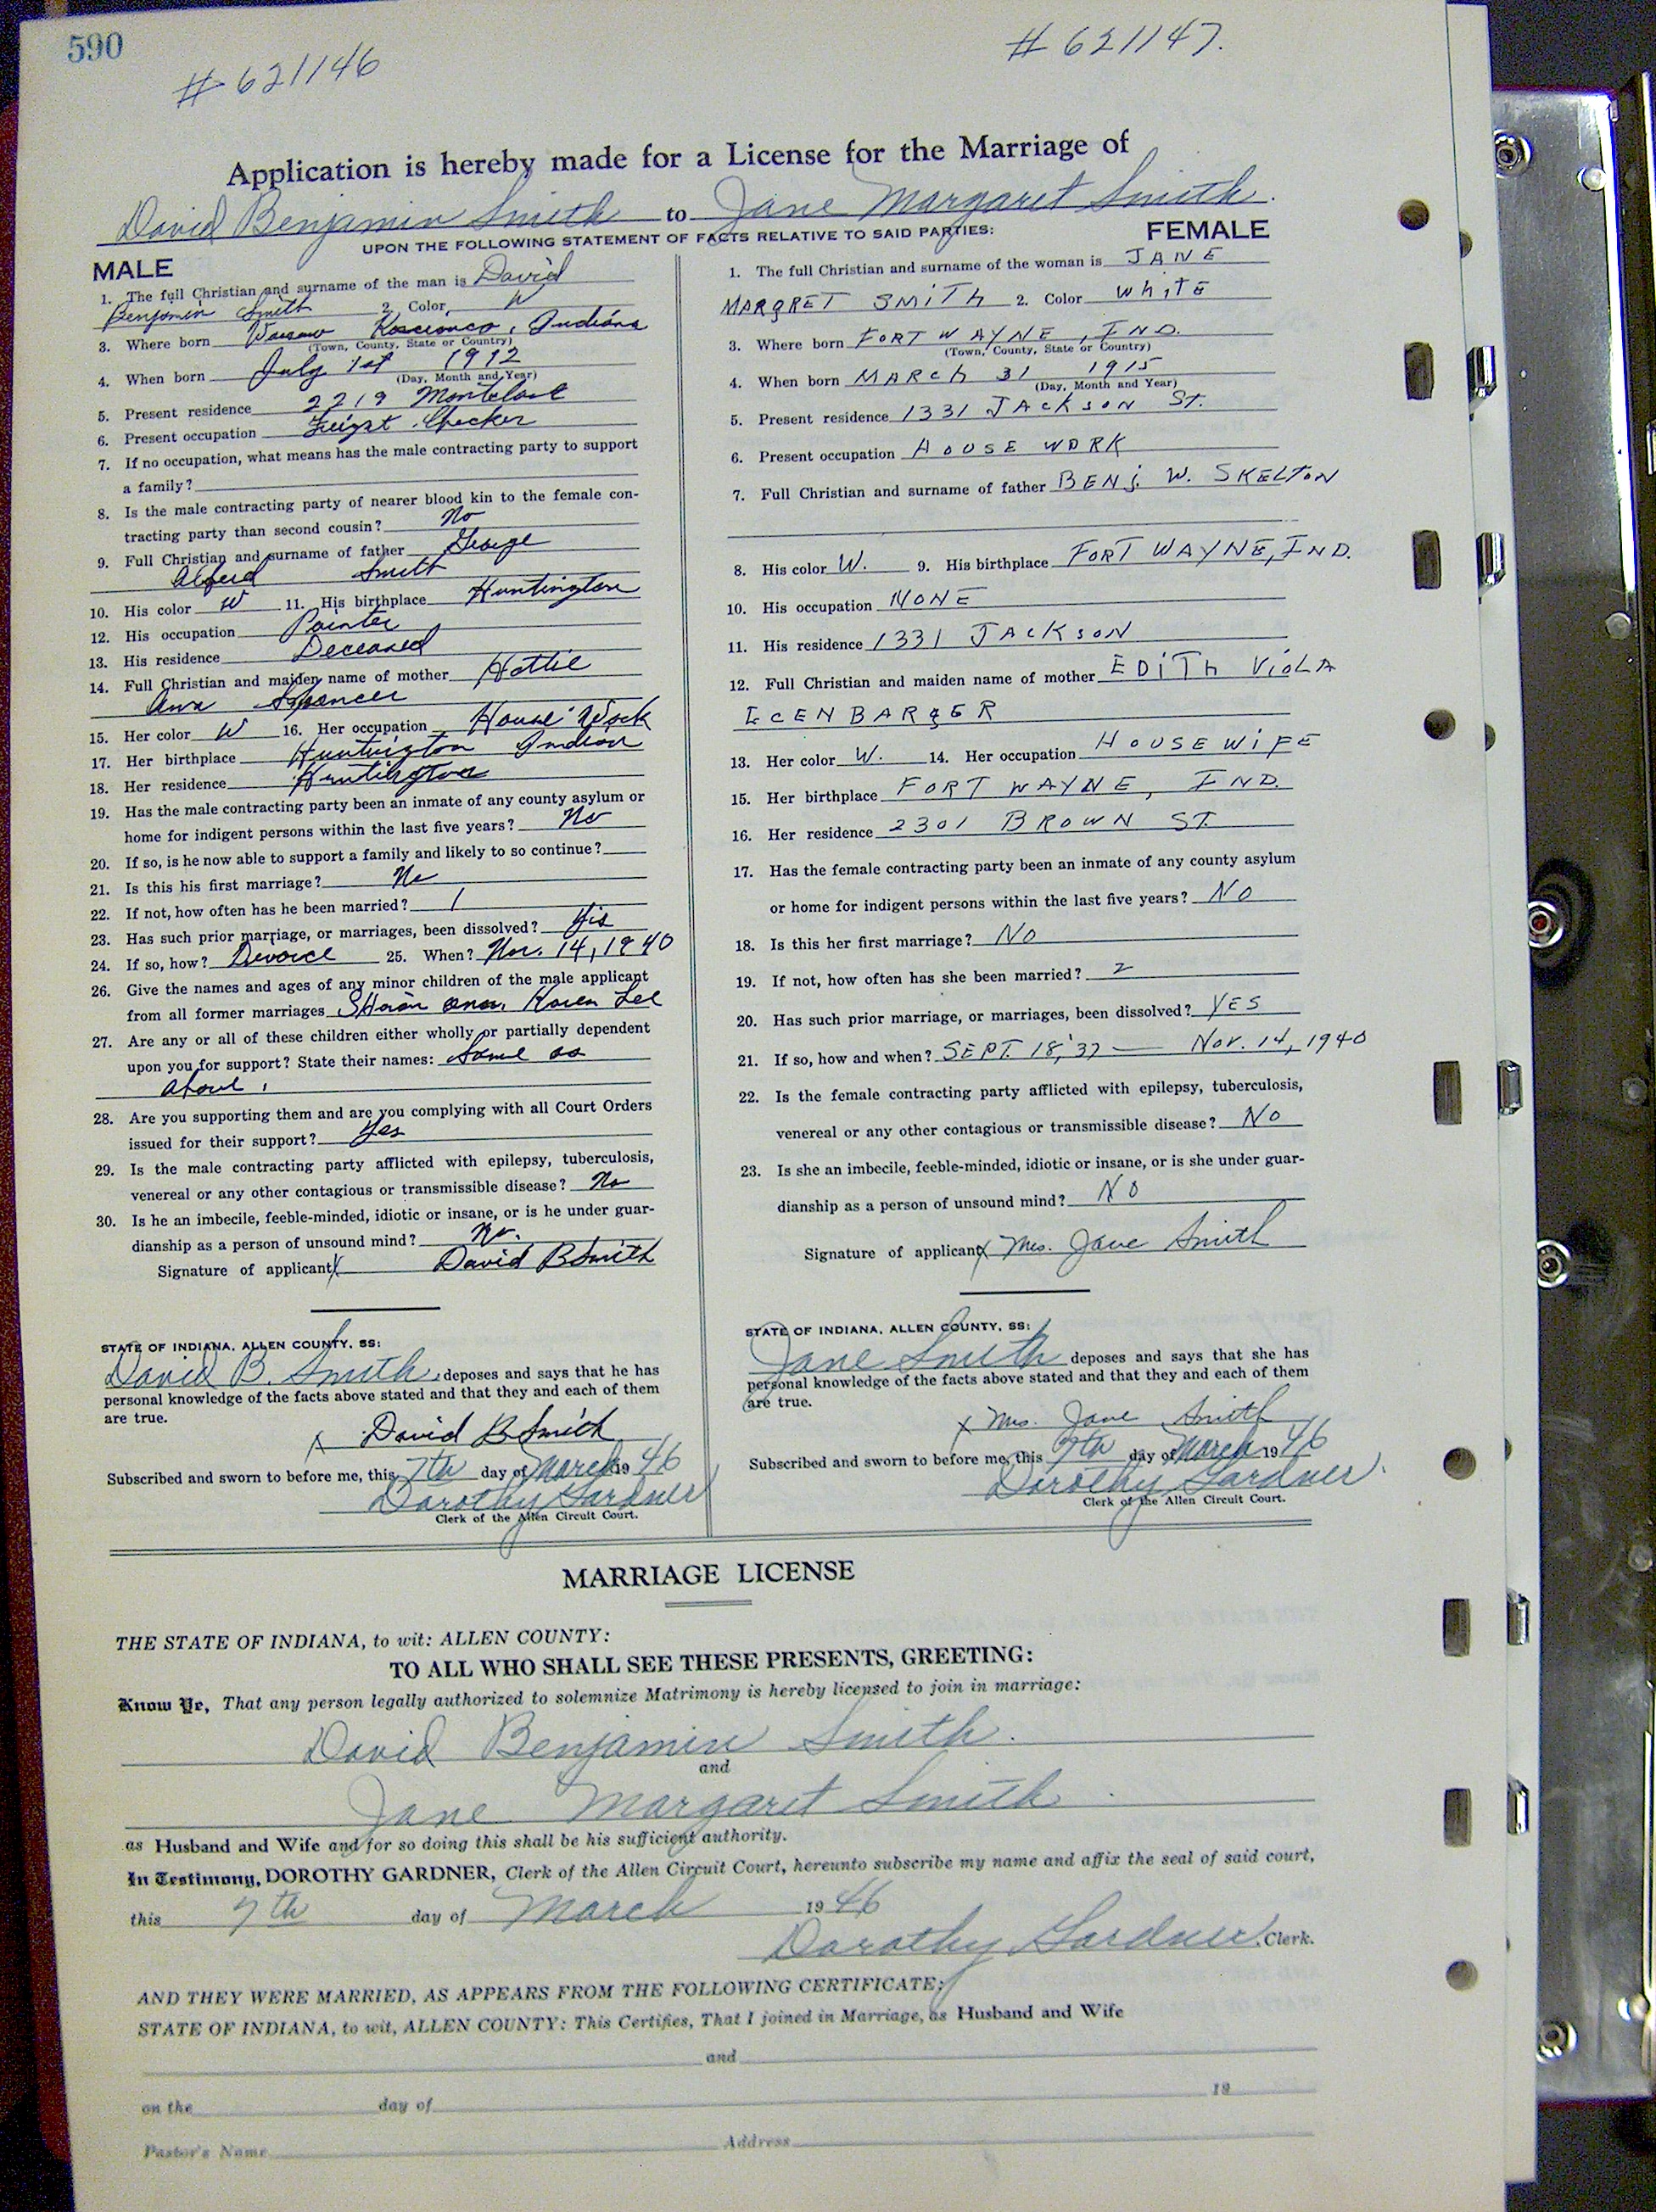 590
# 621146
# 621147.
Application is hereby made for a License for the Marriage of
David Benjamin Smith to Jane Margaret Smith.
UPON THE FOLLOWING STATEMENT OF FACTS RELATIVE TO SAID PARTIES:
MALE
1. The full Christian and surname of the man is David
Benjamin Smith 2. Color, W
3. Where born Warsaw Kosciusco, Indiana
(Town, County, State or Country)
4. When born July 1st 1912
(Day, Month and Year)
5. Present residence 2219
6. Present occupation Checker
7. If no occupation, what means has the male contracting party to support
a family?
8. Is the male contracting party of nearer blood kin to the female con-
tracting party than second cousin? No
9. Full Christian and surname of father George
Smith
10. His color W 11. His birthplace Huntington
12. His occupation Painter
13. His residence Deceased
14. Full Christian and maiden name of mother Hattie
Spencer
15. Her color W 16. Her occupation House Work
17. Her birthplace Huntington
18. Her residence Huntington
19. Has the male contracting party been an inmate of any county asylum or
home for indigent persons within the last five years? No
20. If so, is he now able to support a family and likely to so continue?
21. Is this his first marriage? No
22. If not, how often has he been married? 1
23. Has such prior marriage, or marriages, been dissolved? Yes
24. If so, how? Divorce 25. When? Nov. 14, 1940
26. Give the names and ages of any minor children of the male applicant
from all former marriages Karen Lee
27. Are any or all of these children either wholly or partially dependent
upon you for support? State their names: Same as
above.
28. Are you supporting them and are you complying with all Court Orders
issued for their support? Yes
29. Is the male contracting party afflicted with epilepsy, tuberculosis,
venereal or any other contagious or transmissible disease? No
30. Is he an imbecile, feeble-minded, idiotic or insane, or is he under guar-
dianship as a person of unsound mind? No.
Signature of applicant X David B Smith
STATE OF INDIANA, ALLEN COUNTY, SS:
David B. Smith, deposes and says that he has
personal knowledge of the facts above stated and that they and each of them
are true.
X David B Smith
Subscribed and sworn to before me, this 7th day of March 19 46
Dorothy Gardner
Clerk of the Allen Circuit Court.
FEMALE
1. The full Christian and surname of the woman is JANE
MARGRET SMITH 2. Color WhITE
3. Where born FORT WAYNE, IND.
(Town, County, State or Country)
4. When born MARCh 31 1915
(Day, Month and Year)
5. Present residence 1331 JACKSON ST.
6. Present occupation HOUSE WORK
7. Full Christian and surname of father BENj. W. SKELTON
8. His color W. 9. His birthplace FORT WAYNE, IND.
10. His occupation NONE
11. His residence 1331 JACKSON
12. Full Christian and maiden name of mother EDITh VIOLA
ICENBARGER
13. Her color W. 14. Her occupation HOUSEWIFE
15. Her birthplace FORT WAYNE, IND.
16. Her residence 2301 BROWN ST.
17. Has the female contracting party been an inmate of any county asylum
or home for indigent persons within the last five years? NO
18. Is this her first marriage? NO
19. If not, how often has she been married? 2
20. Has such prior marriage, or marriages, been dissolved? YES
21. If so, how and when? SEPT. 18, '37 — NOV. 14, 1940
22. Is the female contracting party afflicted with epilepsy, tuberculosis,
venereal or any other contagious or transmissible disease? NO
23. Is she an imbecile, feeble-minded, idiotic or insane, or is she under guar-
dianship as a person of unsound mind? NO
Signature of applicant X Mrs. Jane Smith
STATE OF INDIANA, ALLEN COUNTY, SS:
Jane Smith deposes and says that she has
personal knowledge of the facts above stated and that they and each of them
are true.
X Mrs. Jane Smith
Subscribed and sworn to before me, this 7th day of March 19 46
Dorothy Gardner.
Clerk of the Allen Circuit Court.
MARRIAGE LICENSE
THE STATE OF INDIANA, to wit: ALLEN COUNTY:
TO ALL WHO SHALL SEE THESE PRESENTS, GREETING:
Know Ye, That any person legally authorized to solemnize Matrimony is hereby licensed to join in marriage:
David Benjamin Smith.
and
Jane Margaret Smith.
as Husband and Wife and for so doing this shall be his sufficient authority.
In Testimony, DOROTHY GARDNER, Clerk of the Allen Circuit Court, hereunto subscribe my name and affix the seal of said court,
this 7th day of March 19 46
Dorothy Gardner. Clerk.
AND THEY WERE MARRIED, AS APPEARS FROM THE FOLLOWING CERTIFICATE;
STATE OF INDIANA, to wit, ALLEN COUNTY: This Certifies, That I joined in Marriage, as Husband and Wife
and
on the day of 19
Pastor's Name Address